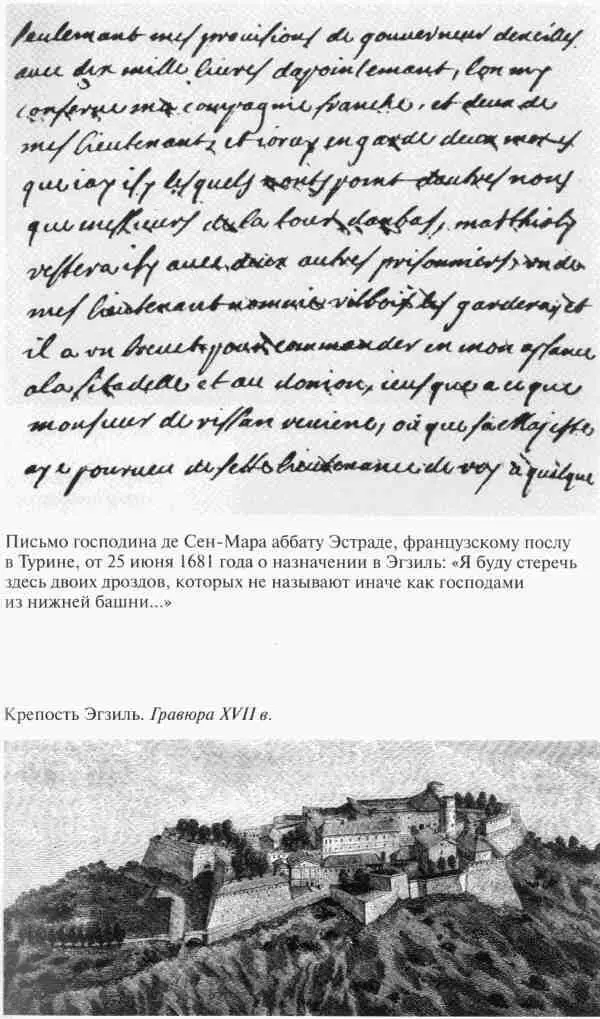 seulemant mes provisions de gouverneur dexilles
avec dix mille livres dapointemant, lon my
conserve ma compagnie franche, et deux de
mes lieutenants, et joray en garde deux merles
que jay isy lesquels nonts point dautres noms
que messieurs de la tour danbas, matthioly
restera isy avec deux autres prisonniers, un de
mes lieutenant nommé villbois les garderas, et
il a un brevet pour commander en mon assance
a la sitadelle et au donjon, jeusque a ce que
monsieur de rissan reviene, ou que sa Majeste
aye pourveu de sette lieutenance de roy a quelque
Письмо господина де Сен-Мара аббату Эстраде, французскому послу
в Турине, от 25 июня 1681 года о назначении в Эгзиль: «Я буду стеречь
здесь двоих дроздов, которых не называют иначе как господами
из нижней башни...»
Крепость Эгзиль. Гравюра XVII в.